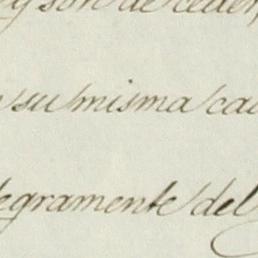 y son de ceder,
su misma ca
tegramente del